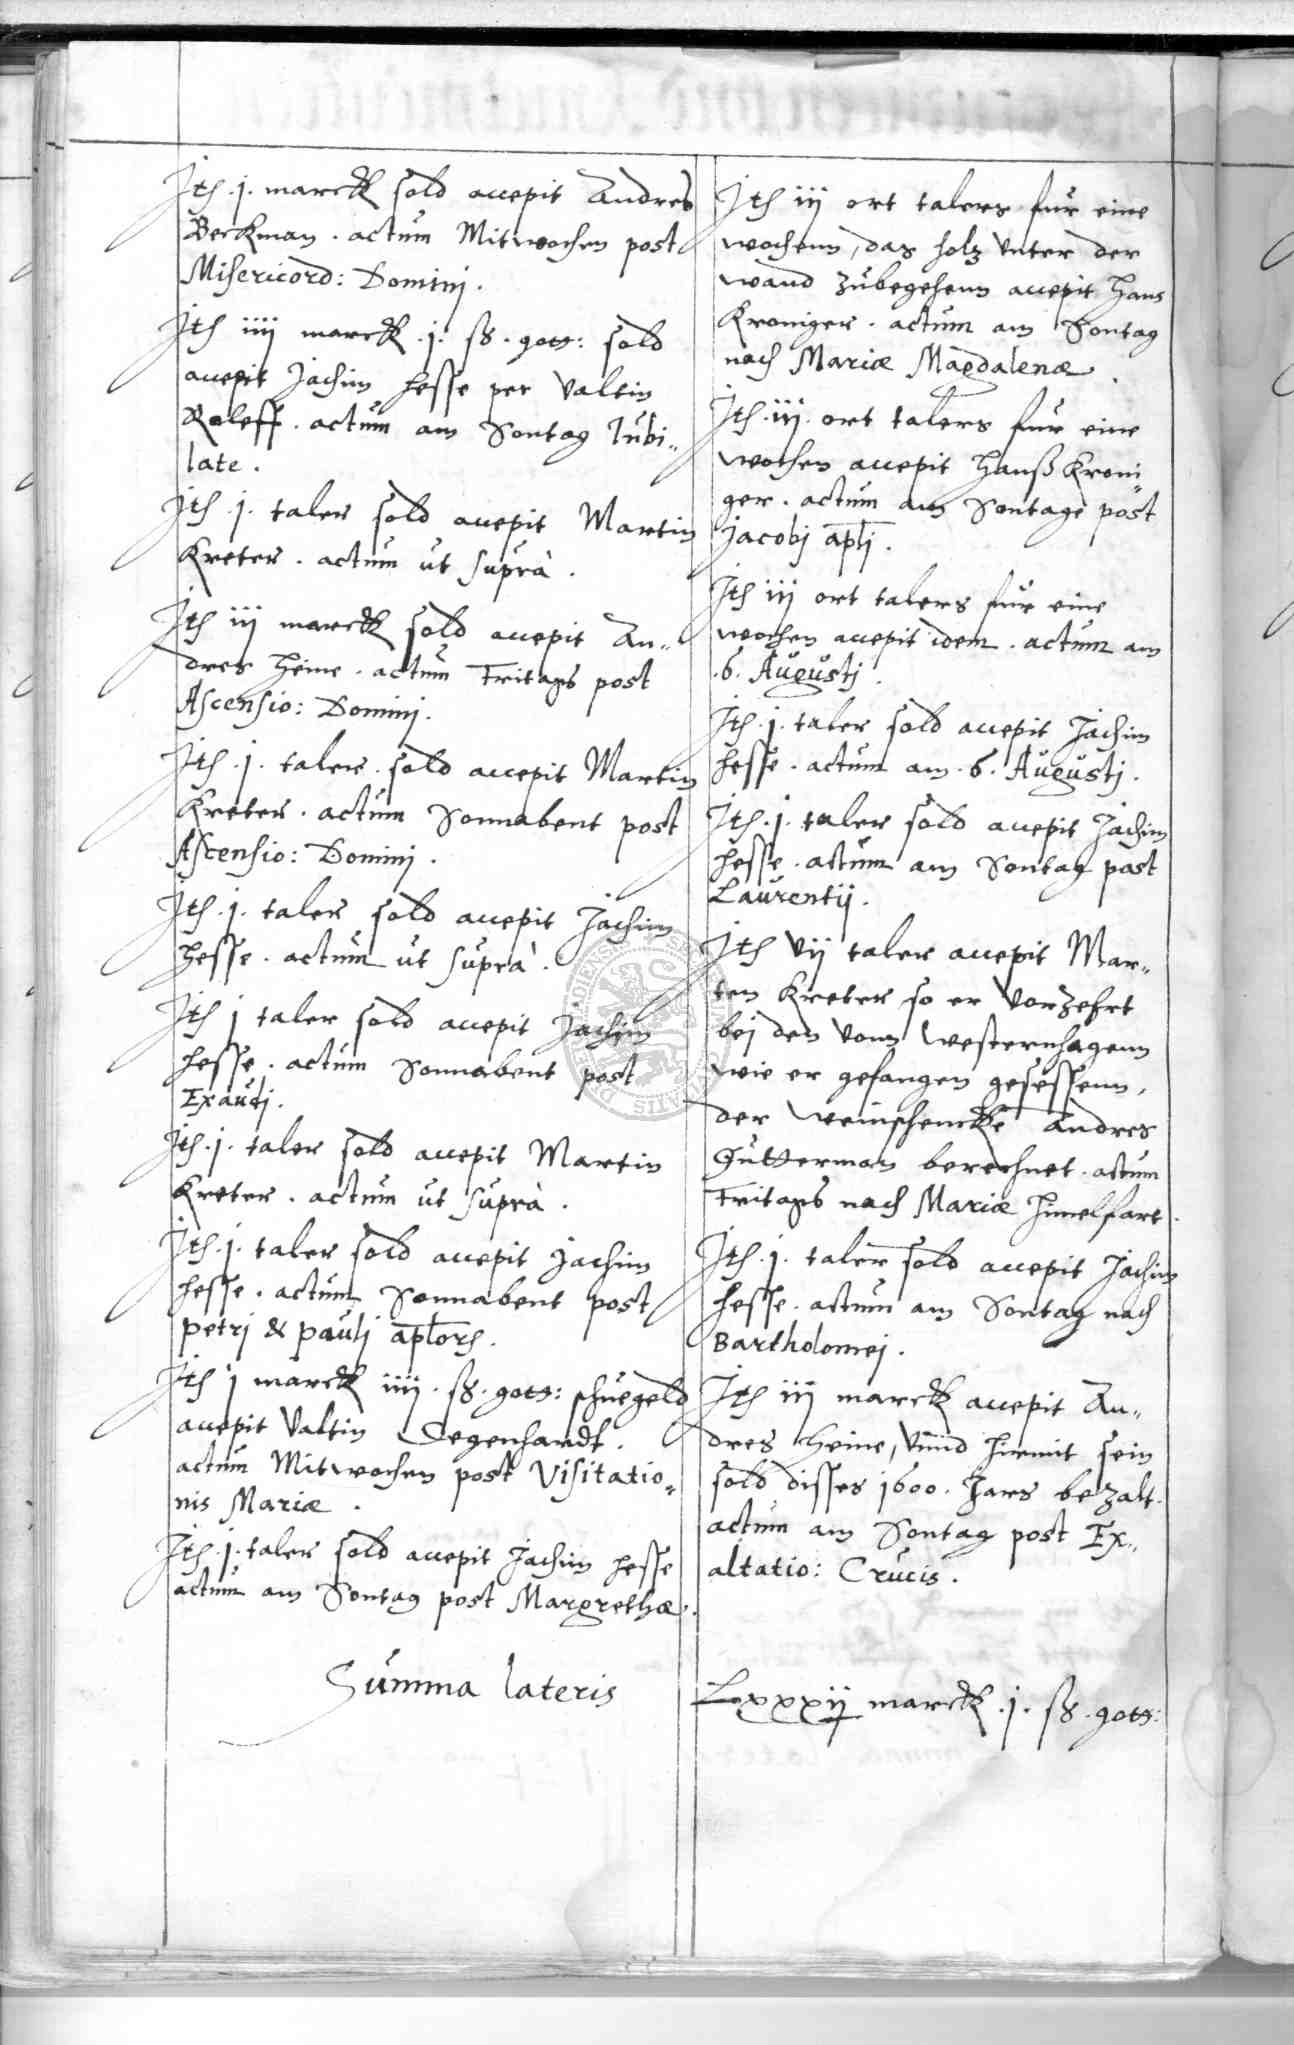 Ith .j. marck sold accepit Andres
Berckman . actum Mitwochen post
Misericord: Dominj .
Ith iiij marck .j. ß . gots: sold
accepit Jachim Hesse per Valtin
Roleff . actum am Sontag Jubi„
late .
Ith .j. taler sold accepit Martin
Kreter . actum ut suprà .
Ith iij marck sold accepit An„
dres Heine . actum Fritags post
Ascensio: Dominj .
Ith .j. taler . sold accepit Martin
Kreter . actum Sonnabent post
Ascensio: Dominj .
Ith .j. taler sold accepit Jachim
Hesse . actum ut suprà .
Ith j taler sold accepit Jachim
Hesse . actum Sonnabent post
Exaudj .
Ith .j. taler sold accepit Martin
Kreter . actum ut suprà .
Ith .j. taler sold accepit Jachim
Hesse . actum Sonnabent post
Petrj & Paulj aplorh .
Ith j marck iiij . ß . gots: schuegeld
accepit Valtin Degenhardt .
actum Mitwochen post Visitatio„
nis Mariæ .
Ith .j. taler sold accepit Jachim Hesse
actum am Sontag post Margrethæ .
Summa lateris
Ith iij ort talers fur eine
wochenn, das holz unter der
wand zubegehenn accepit Hans
Kroniger . actum am Sontag
nach Mariæ Magdalenæ .
Ith .iij. ort talers fur eine
wochen accepit Hanß Kroni„
ger . actum am Sontage post
Jacobj aplj .
Ith iij ort talers fur eine
wochen accepit idem . actum am
.6. Augustj .
Ith .j. taler sold accepit Jachim
Hesse . actum am .6. Augustj .
Ith .j. taler sold accepit Jachim
Hesse . actum am Sontag post
Laurentij .
Ith vij taler accepit Mar„
ten Kreter so er vorzehrt
bej den vonn Westernhagenn
wie er gefangen gesessenn,
der weinschencke Andres
Gutterman berechnet . actum
Fritags nach Mariæ Himelfart .
Ith .j. taler sold accepit Jachim
Hesse . actum am Sontag nach
Bartholomej .
Ith iij marck accepit An„
dres Heine, vnnd hiemit sein
sold disses 1600 . Jars bezalt .
actum am Sontag post Ex„
altatio: Crucis .
Lxxxij marck .j. ß . gots: